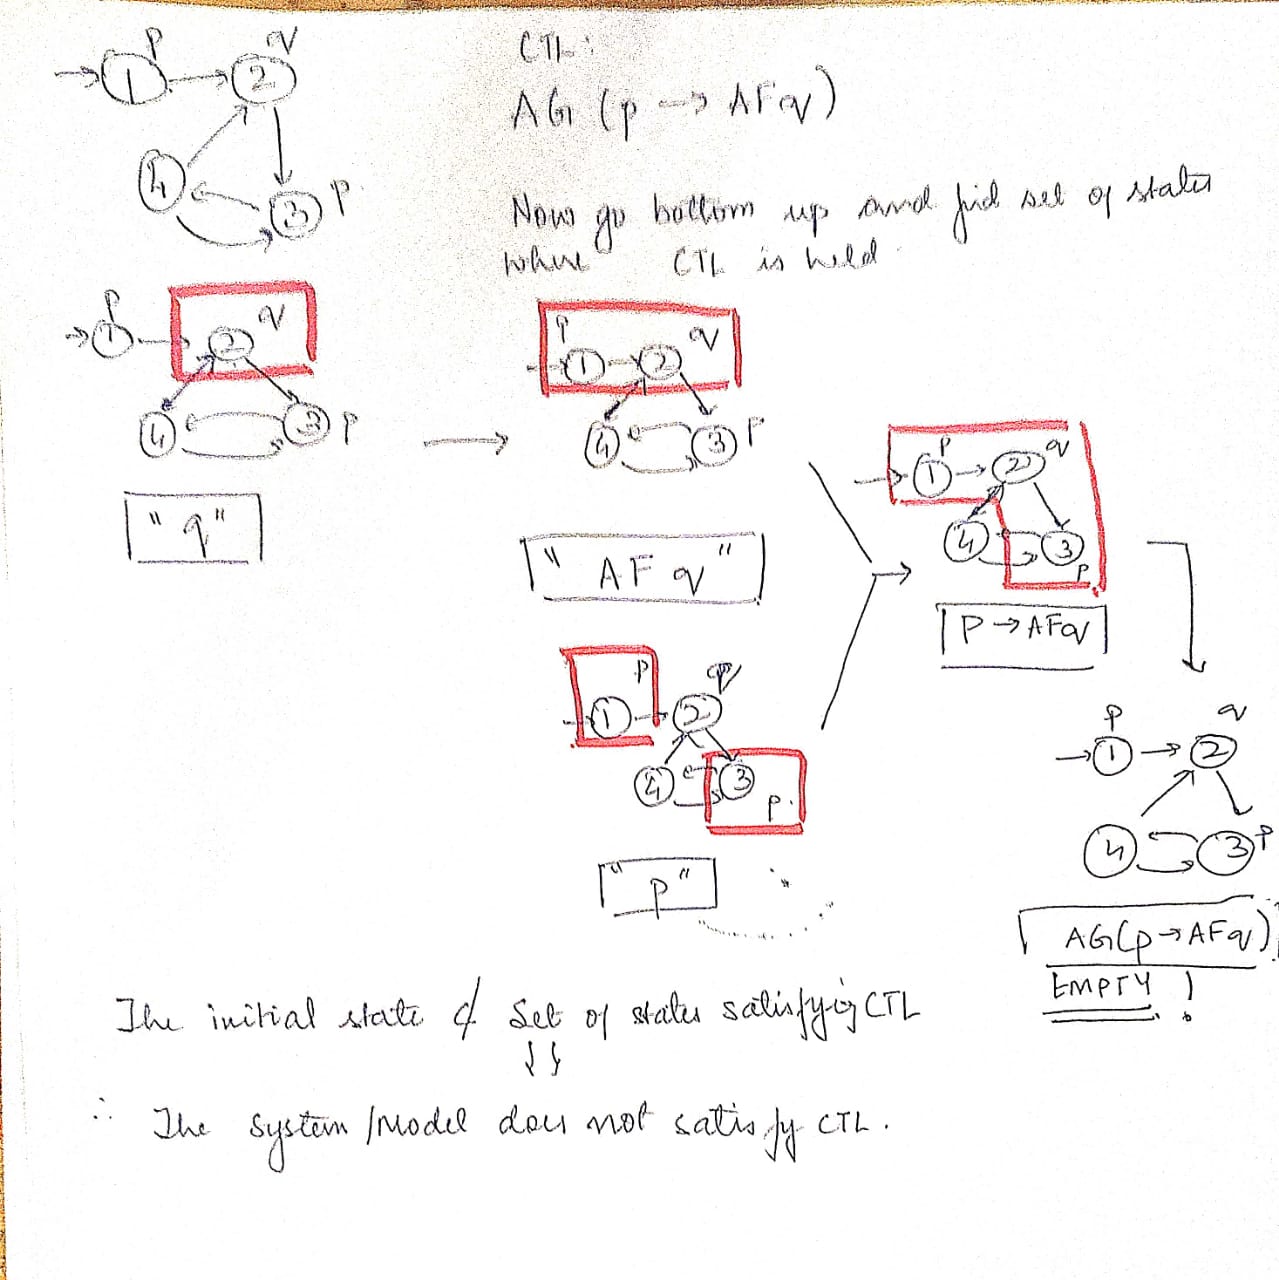 p q
1 2
4 3 p
CTL:
AG (p → AFq)
Now go bottom up and fid set of states
where CTL is held.
p q
1 2
4 3 p
"q"
→
p q
1 2
4 3 p
"AF q"
p
1 2
4 3
p.
"p"
→
p q
1 2
4 3
p
P → AFq
p q
1 2
4 3 p
AG(p → AFq)
EMPTY!
The initial state ⊄ Set of states satisfyig CTL
∴ The System/Model does not satisfy CTL.